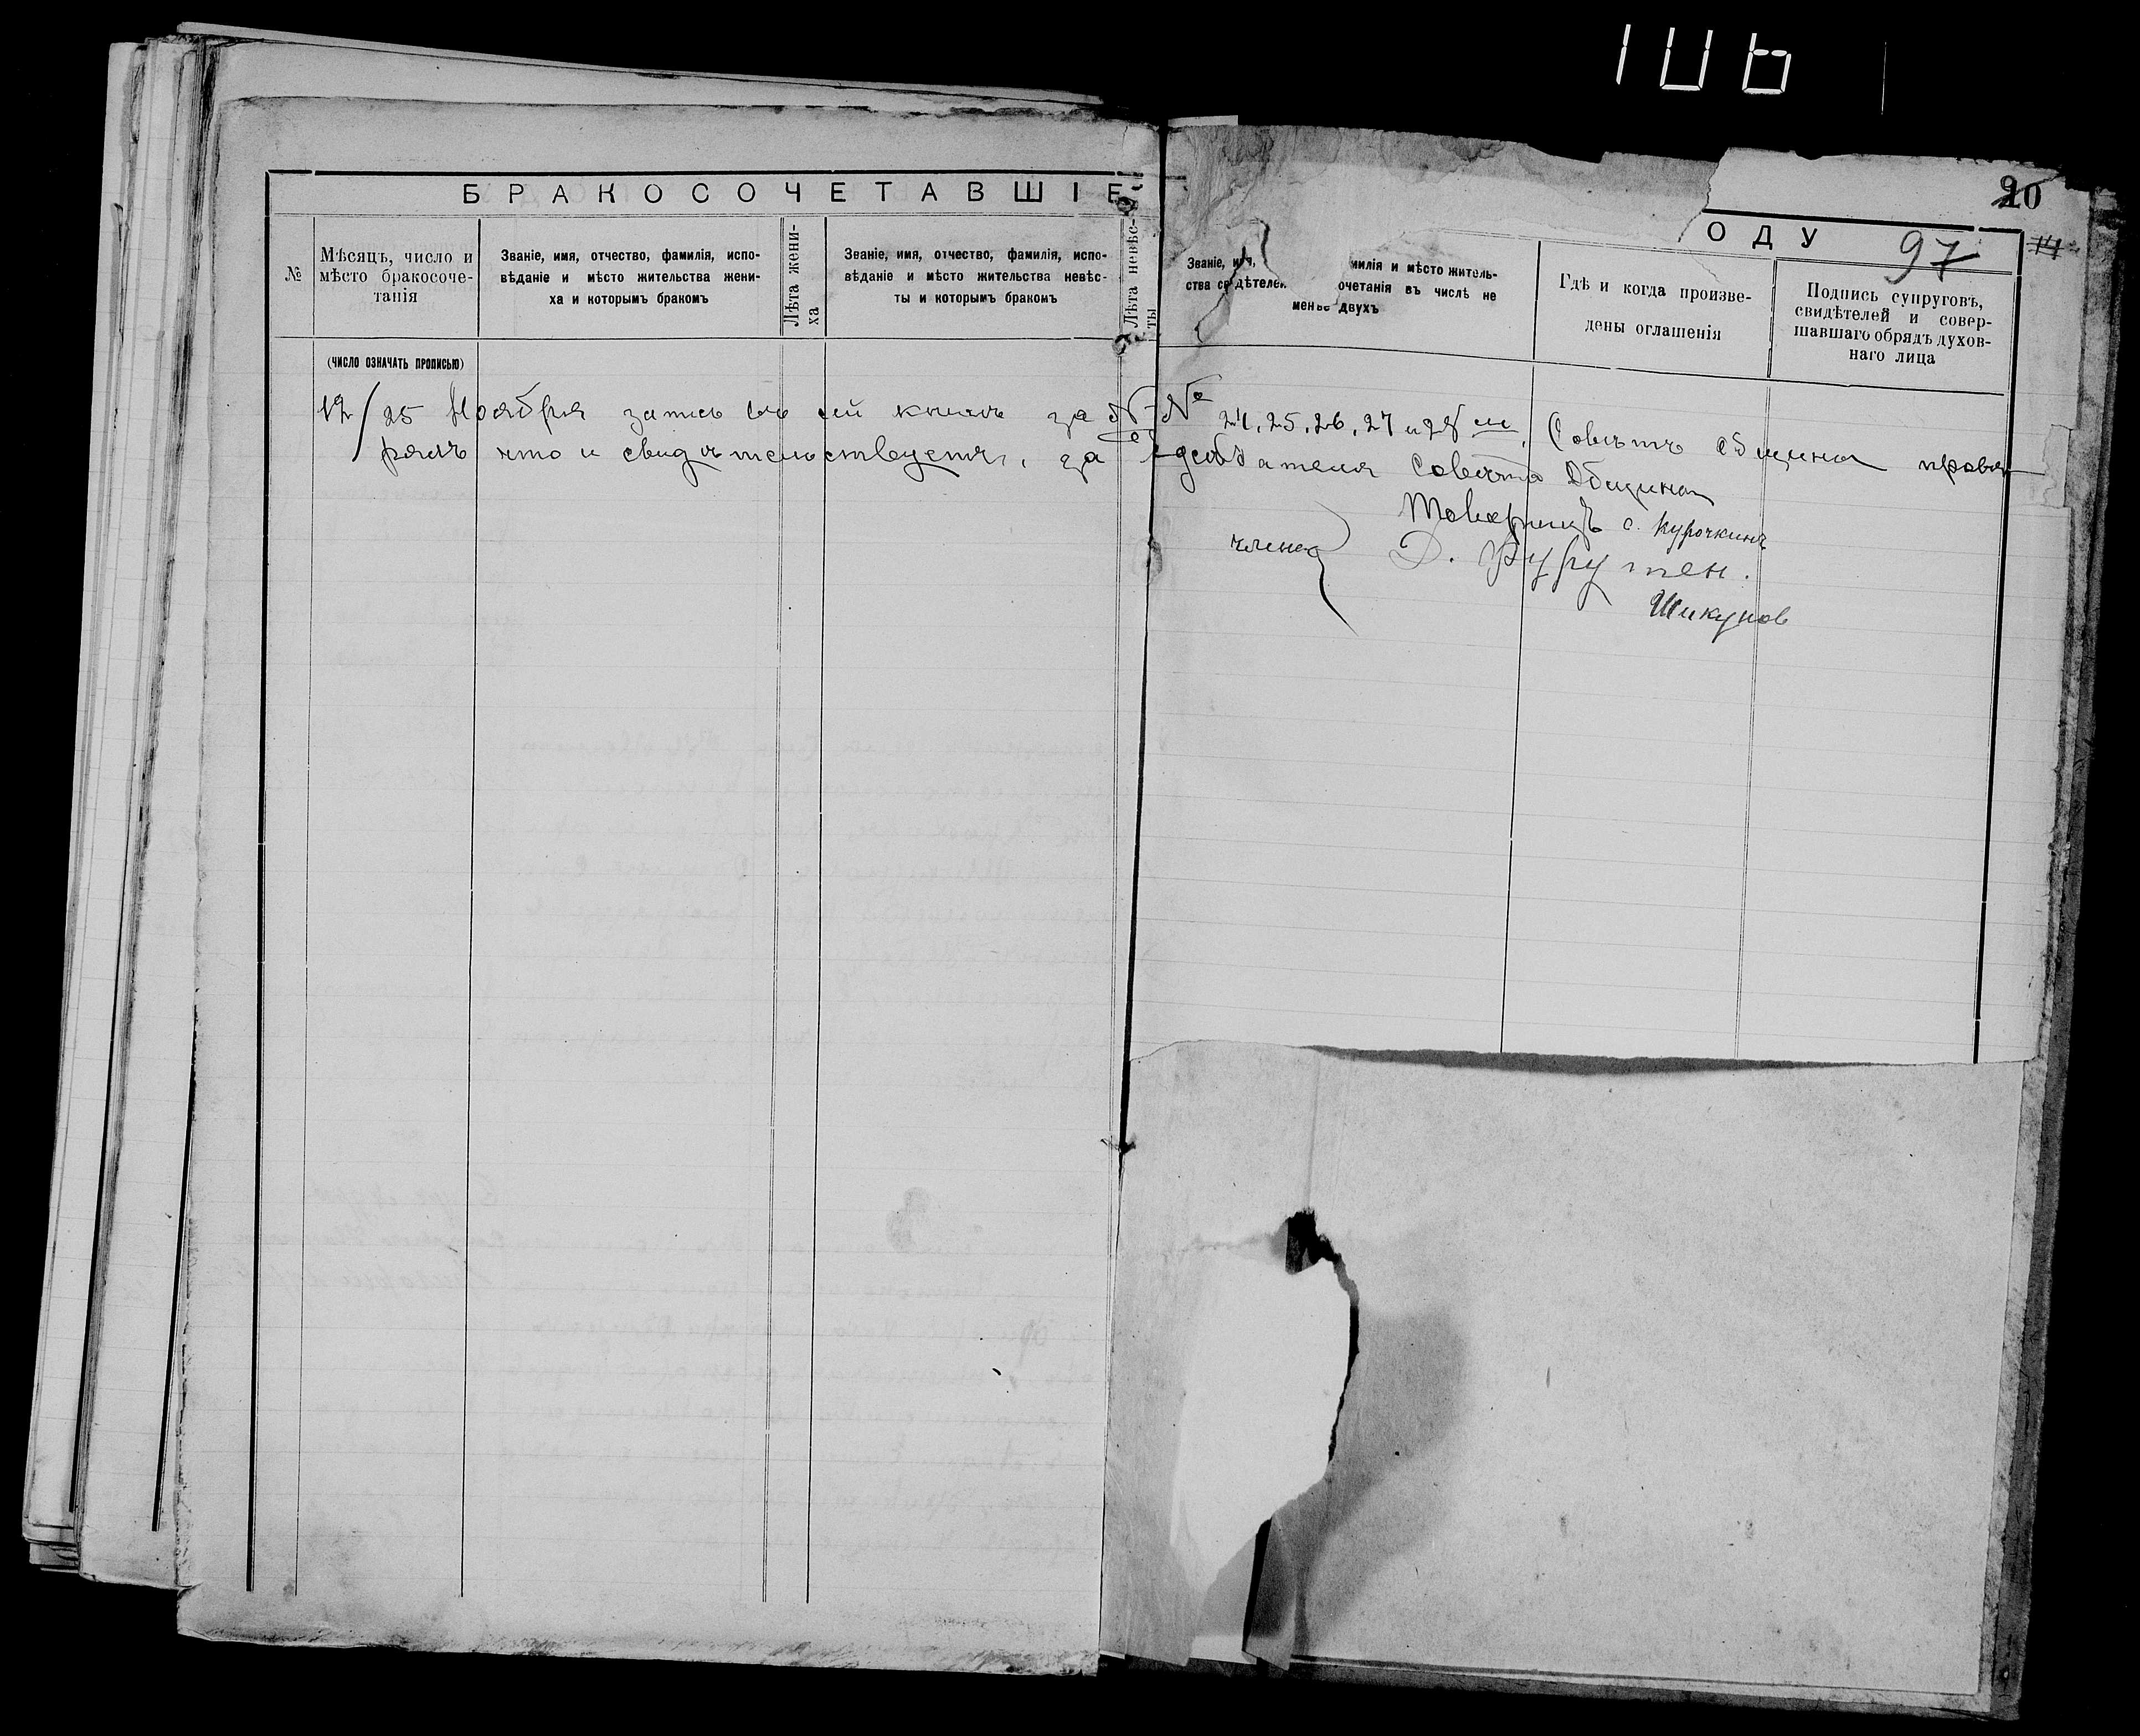 106
БРАКОСОЧЕТАВШІЕ-
№
Мѣсяцъ, число и
мѣсто бракосоче-
танія
Званіе, имя, отчество, фамилія, испо-
вѣданіе и мѣсто жительства жени-
ха и которымъ бракомъ
Лѣта жени-
ха
Званіе, имя, отчество, фамилія, испо-
вѣданіе и мѣсто жительства невѣс-
ты и которымъ бракомъ
Лѣта невѣс-
ты
(ЧИСЛО ОЗНАЧАТЬ ПРОПИСЬЮ)
20
ОДУ
97
14
Званіе, имя,
милія и мѣсто житель-
ства свидѣтелей
очетанія въ числѣ не
менѣе двухъ
Гдѣ и когда произве-
дены оглашенія
Подпись супруговъ,
свидѣтелей и совер-
шавшаго обрядъ духов-
наго лица
12/25 Ноября запись въ сей книгѣ за №№ 24, 25, 26, 27 и 28 м, Совѣтъ общины провѣ-
рялъ что и свидѣтельствуетъ, за предсѣдателя Совѣта Общины
Товарищъ С. Курочкинъ
члены Д.
Шикунов